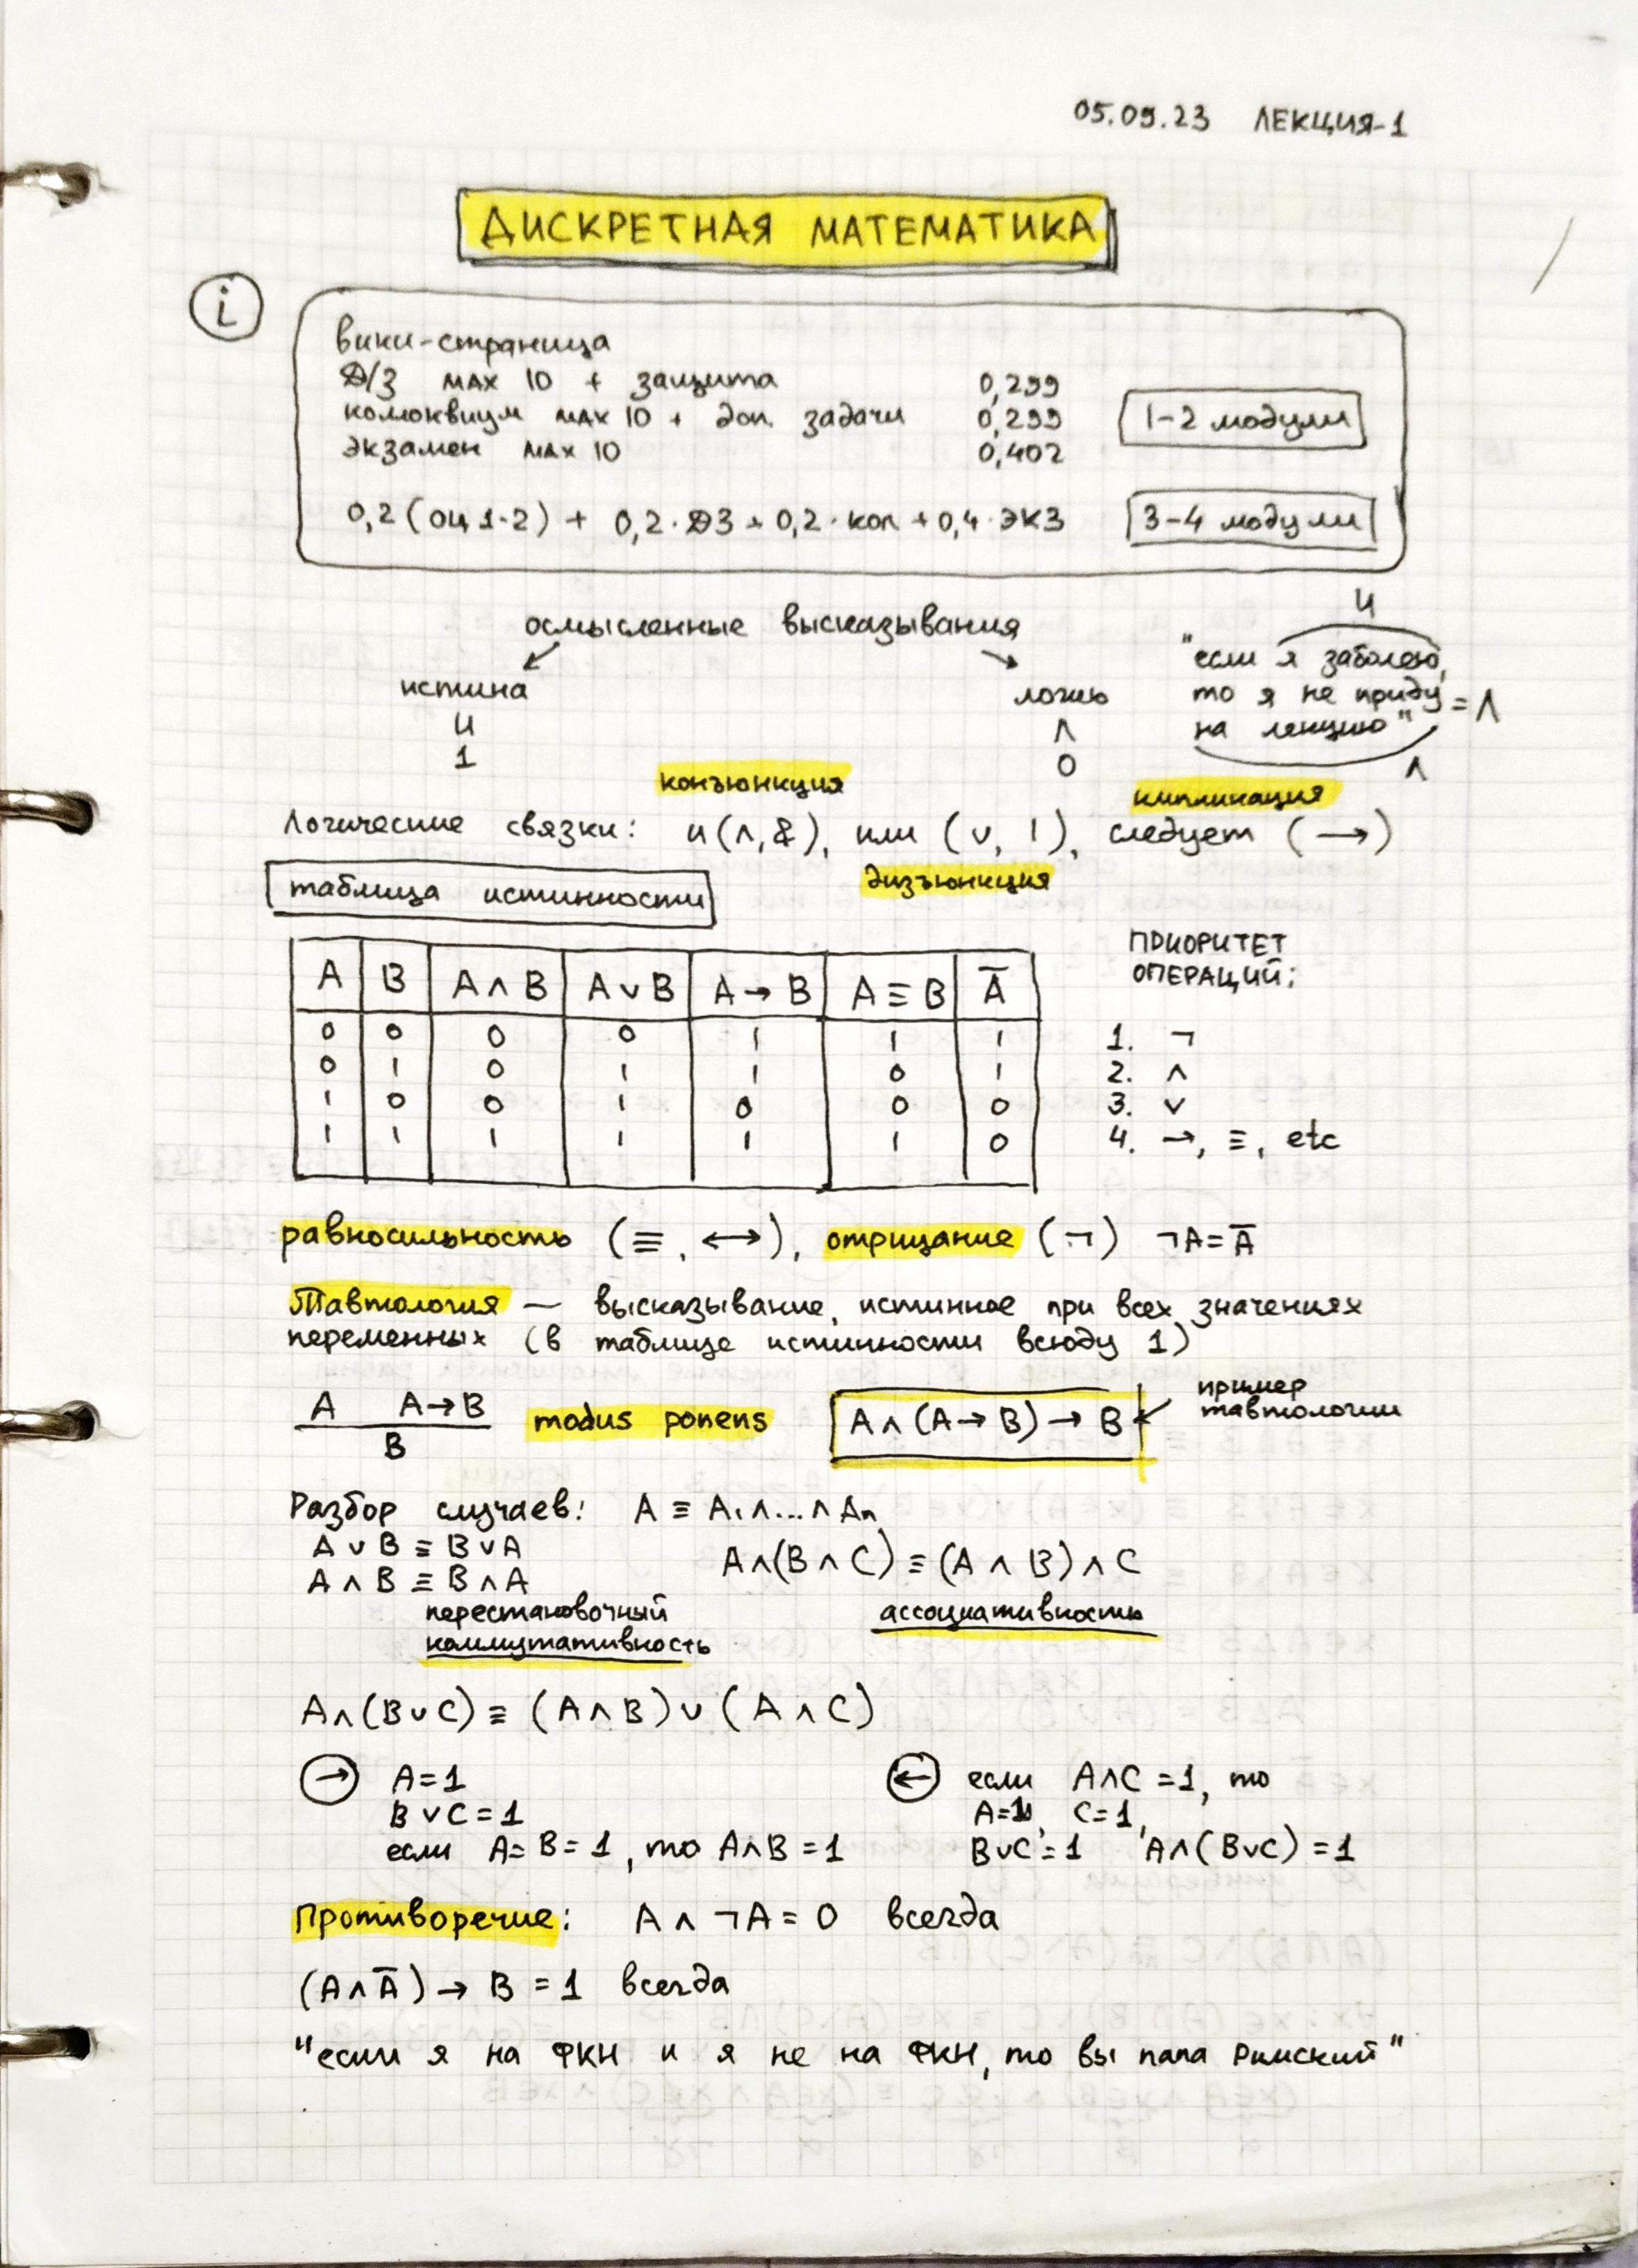 05.09.23 ЛЕКЦИЯ-1
ДИСКРЕТНАЯ МАТЕМАТИКА
i
вики-страница
Д/З MAX 10 + защита 0,299
коллоквиум MAX 10 + доп. задачи 0,299
1-2 модули
экзамен MAX 10 0,402
0,2 (ОЦ 1-2) + 0,2·ДЗ + 0,2·кол + 0,4·ЭКЗ 3-4 модули
осмысленные высказывания
истина
И
1
ложь
Л
0
И
"если я заболею,
то я не приду = Л
на лекцию"
Л
конъюнкция
импликация
Логические связки: и (∧, &), или (∨, |), следует (→)
дизъюнкция
таблица истинности
A B A∧B A∨B A→B A≡B A̅
0 0 0 0 1 1 1
0 1 0 1 1 0 1
1 0 0 1 0 0 0
1 1 1 1 1 1 0
ПРИОРИТЕТ
ОПЕРАЦИЙ:
1. ¬
2. ∧
3. ∨
4. →, ≡, etc
равносильность (≡, ↔), отрицание (¬) ¬A = A̅
Тавтология — высказывание, истинное при всех значениях
переменных (в таблице истинности всюду 1)
A A→B
B
modus ponens
A∧(A→B)→B
пример
тавтологии
Разбор случаев: A ≡ A₁∧...∧Aₙ
A∨B ≡ B∨A
A∧B ≡ B∧A
перестановочный
коммутативность
A∧(B∧C) ≡ (A∧B)∧C
ассоциативность
A∧(B∨C) ≡ (A∧B)∨(A∧C)
→ A=1
B∨C=1
если A=B=1, то A∧B=1
← если A∧C=1, то
A=1, C=1,
B∨C=1 A∧(B∨C)=1
Противоречие: A∧¬A=0 всегда
(A∧A̅)→B=1 всегда
"если я на ФКН и я не на ФКН, то вы папа Римский"